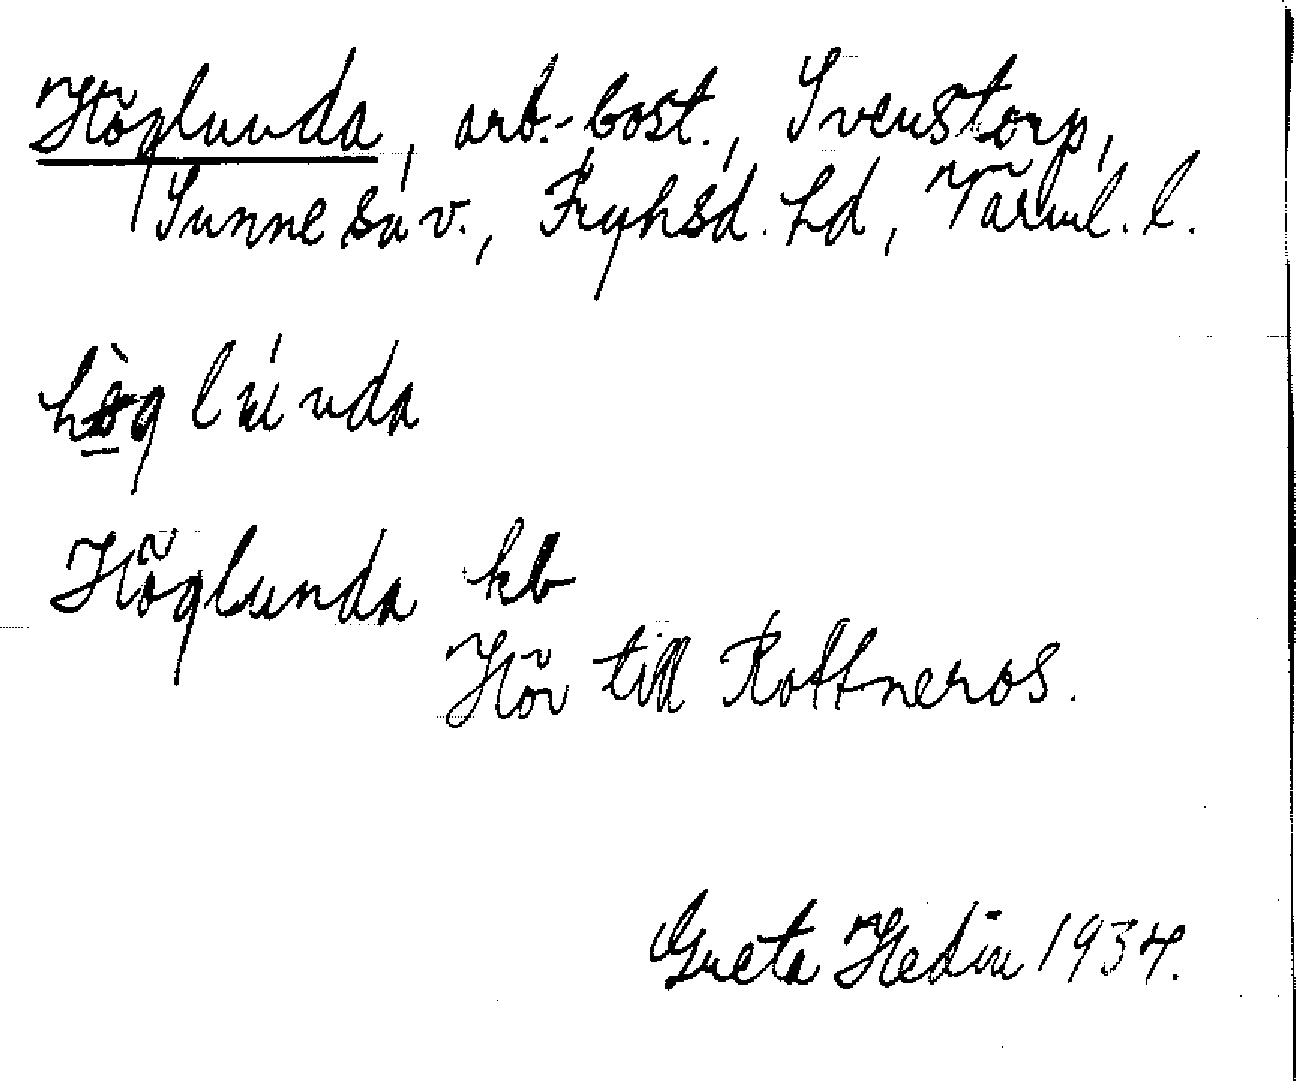 Höglunda, arb.-bost., Svenstorp,
Sunne sn v., Fryksd. hd, Värml. l.
hö̀g lúnda
Höglunda kb
Hör till Rottneros.
Greta Hedin 1934.